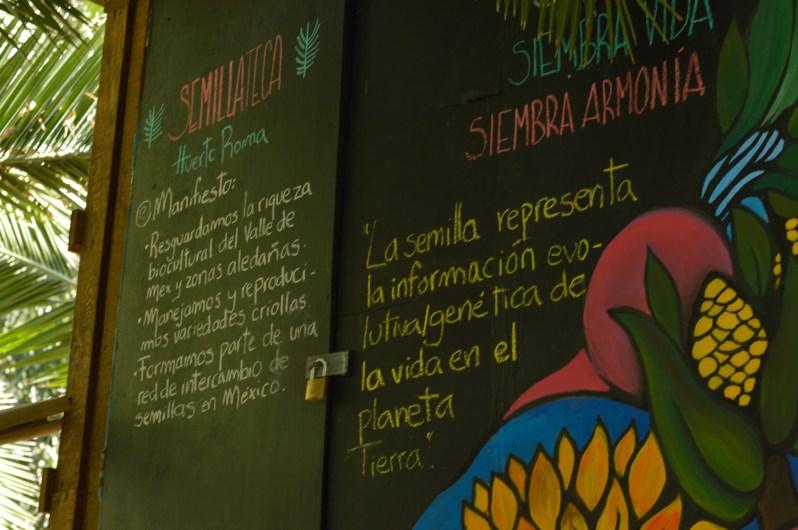 SEMILLATECA
Huerto Roma
@Manifiesto:
·Resguardamos la riqueza
biocultural del Valle de
Mex y zonas aledañas.
·Manejamos y reproduci-
mos variedades criollas.
·Formamos parte de una
red de intercambio de
semillas en México.
SIEMBRA VIDA
SIEMBRA ARMONÍA
"La semilla representa
la información evo-
lutiva/genética de
la vida en el
planeta
Tierra".